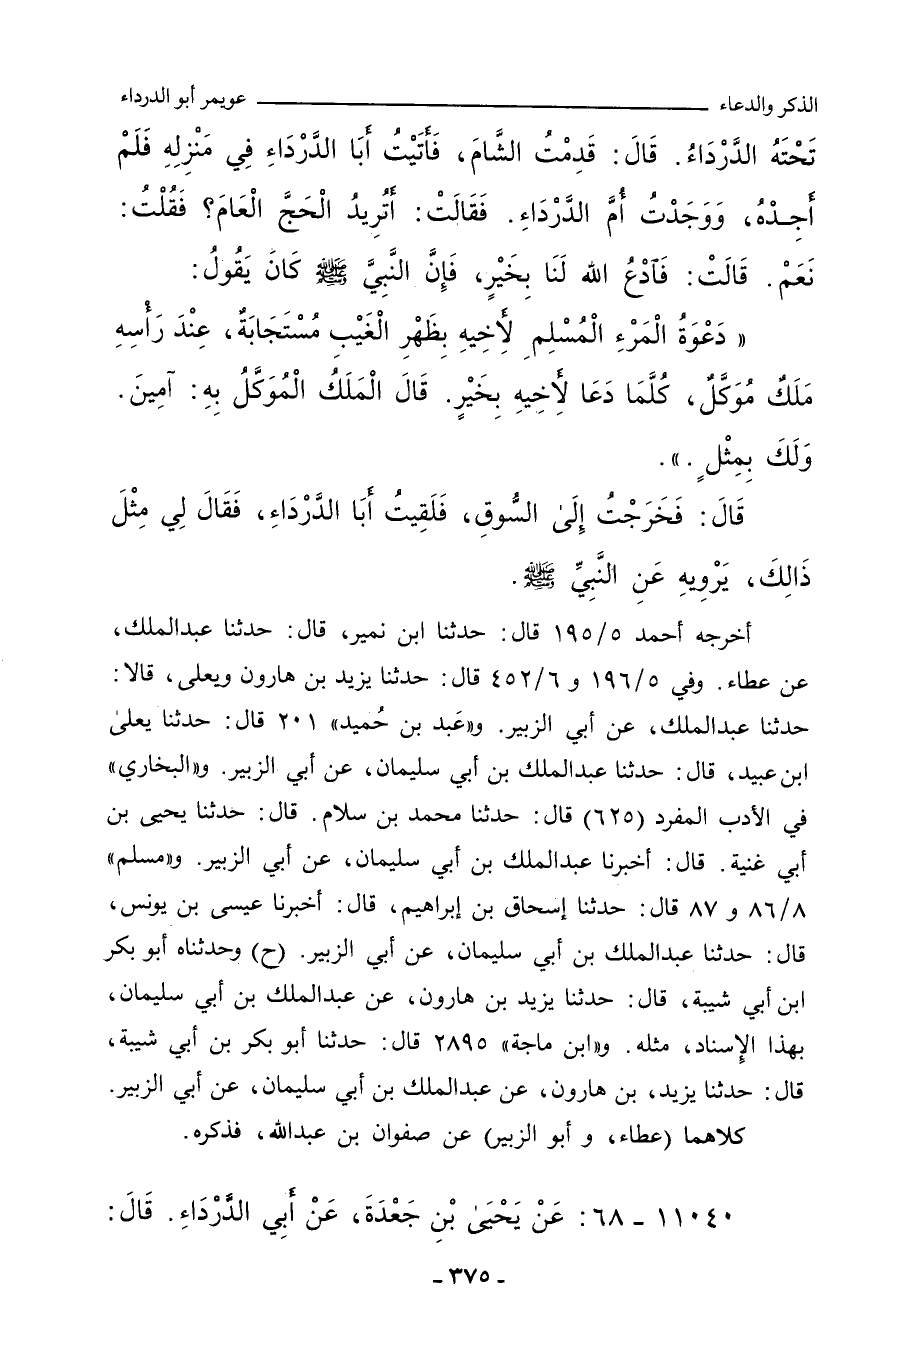 الذكر والدعاء ــــــــــــــــ عويمر أبو الدرداء
تَحْتَهُ الدَّرْدَاءُ. قَالَ: قَدِمْتُ الشَّامَ، فَأَتَيْتُ أَبَا الدَّرْدَاءِ فِي مَنْزِلِهِ فَلَمْ
أَجِدْهُ، وَوَجَدْتُ أُمَّ الدَّرْدَاءِ. فَقَالَتْ: أَتُرِيدُ الْحَجَّ الْعَامَ؟ فَقُلْتُ:
نَعَمْ. قَالَتْ: فَآدْعُ اللهَ لَنَا بِخَيْرٍ، فَإِنَّ النَّبِيَّ ﷺ كَانَ يَقُولُ:
« دَعْوَةُ الْمَرْءِ الْمُسْلِمِ لأَخِيهِ بِظَهْرِ الْغَيْبِ مُسْتَجَابَةٌ، عِنْدَ رَأْسِهِ
مَلَكٌ مُوَكَّلٌ، كُلَّمَا دَعَا لأَخِيهِ بِخَيْرٍ. قَالَ الْمَلَكُ الْمُوَكَّلُ بِهِ: آمِينَ.
وَلَكَ بِمِثْلٍ .».
قَالَ: فَخَرَجْتُ إِلَىٰ السُّوقِ، فَلَقِيتُ أَبَا الدَّرْدَاءِ، فَقَالَ لِي مِثْلَ
ذَالِكَ، يَرْوِيهِ عَنِ النَّبِيِّ ﷺ.
أخرجه أحمد ١٩٥/٥ قال: حدثنا ابن نمير، قال: حدثنا عبدالملك،
عن عطاء. وفي ١٩٦/٥ و ٤٥٢/٦ قال: حدثنا يزيد بن هارون ويعلى، قالا:
حدثنا عبدالملك، عن أبي الزبير. و«عَبد بن حُميد» ٢٠١ قال: حدثنا يعلىٰ
ابن عبيد، قال: حدثنا عبدالملك بن أبي سليمان، عن أبي الزبير. و«البخاري»
في الأدب المفرد (٦٢٥) قال: حدثنا محمد بن سلام. قال: حدثنا يحيى بن
أبي غنية. قال: أخبرنا عبدالملك بن أبي سليمان، عن أبي الزبير. و«مسلم»
٨٦/٨ و ٨٧ قال: حدثنا إسحاق بن إبراهيم، قال: أخبرنا عيسى بن يونس،
قال: حدثنا عبدالملك بن أبي سليمان، عن أبي الزبير. (ح) وحدثناه أبو بكر
ابن أبي شيبة، قال: حدثنا يزيد بن هارون، عن عبدالملك بن أبي سليمان،
بهذا الإسناد، مثله. و«ابن ماجة» ٢٨٩٥ قال: حدثنا أبو بكر بن أبي شيبة،
قال: حدثنا يزيد، بن هارون، عن عبدالملك بن أبي سليمان، عن أبي الزبير.
كلاهما (عطاء، و أبو الزبير) عن صفوان بن عبدالله، فذكره.
١١٠٤٠ ـ ٦٨: عَنْ يَحْيَىٰ بْنِ جَعْدَةَ، عَنْ أَبِي الدَّرْدَاءِ. قَالَ:
ـ ٣٧٥ ـ